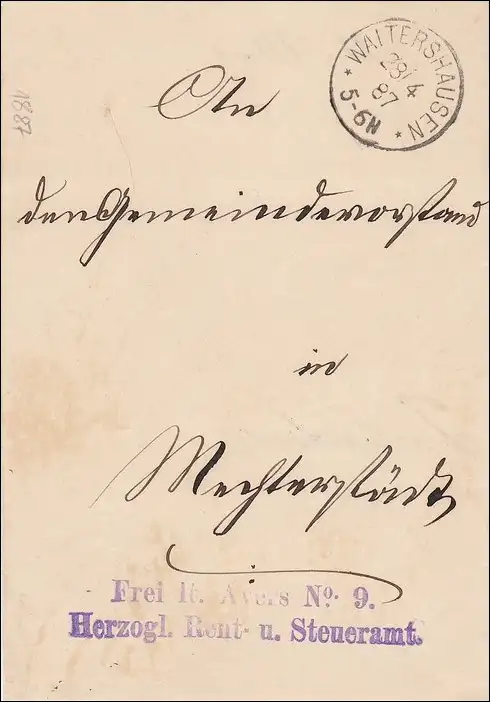 WALTERSHAUSEN
28/4
87
5-6N
1887
An
den Gemeindevorstand
in
Mechterstädt
Frei lt. Avers No. 9.
Herzogl. Rent- u. Steueramt.